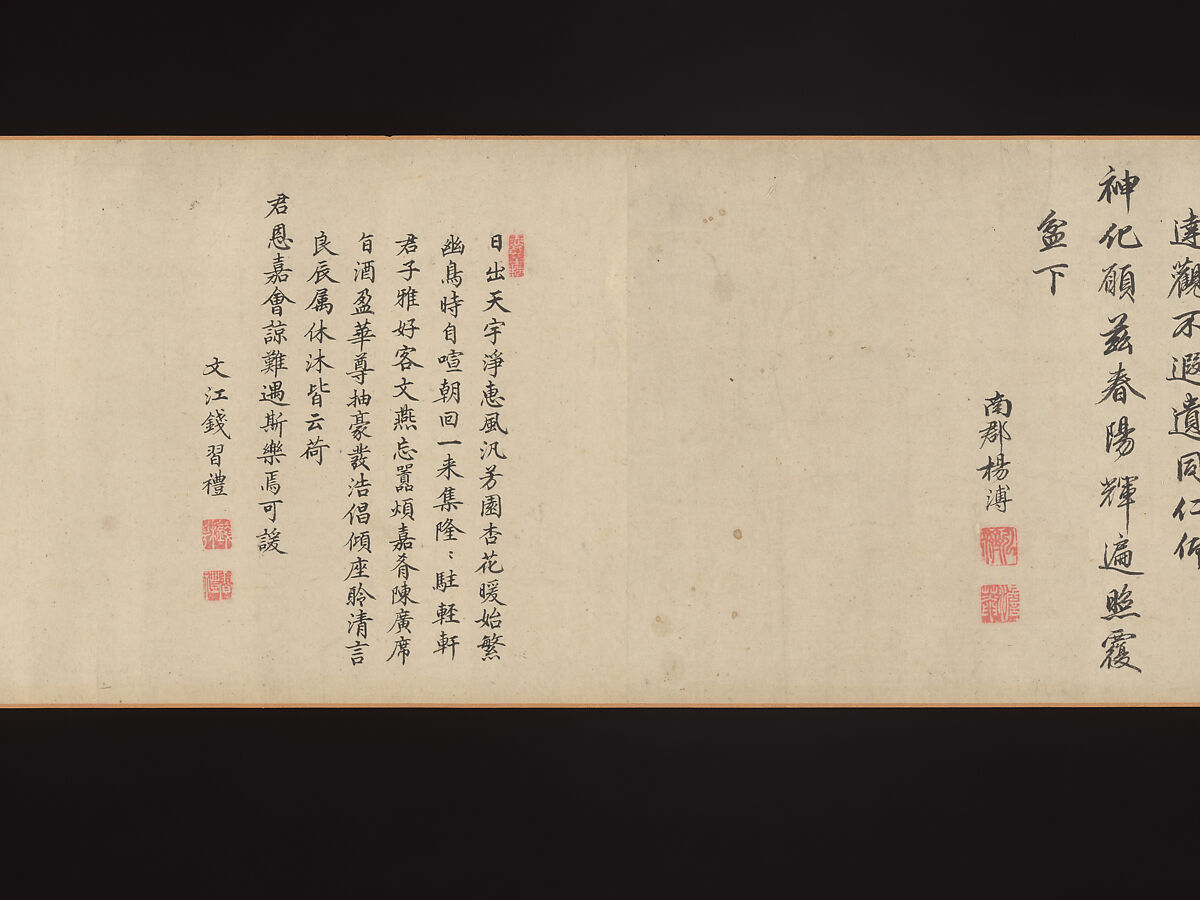 達觀不遐遺同仁
神化願茲春陽輝遍照覆
盆下
南郡楊溥
日出天宇淨惠風汎芳園杏花暖始繁
幽鳥時自喧朝回一来集隆〻駐輕軒
君子雅好客文燕忘嚣煩嘉肴陳廣席
旨酒盈華尊抽豪發浩倡傾座聆清言
良辰属休沐皆云荷
君恩嘉會諒難遇斯樂焉可諼
文江錢習禮